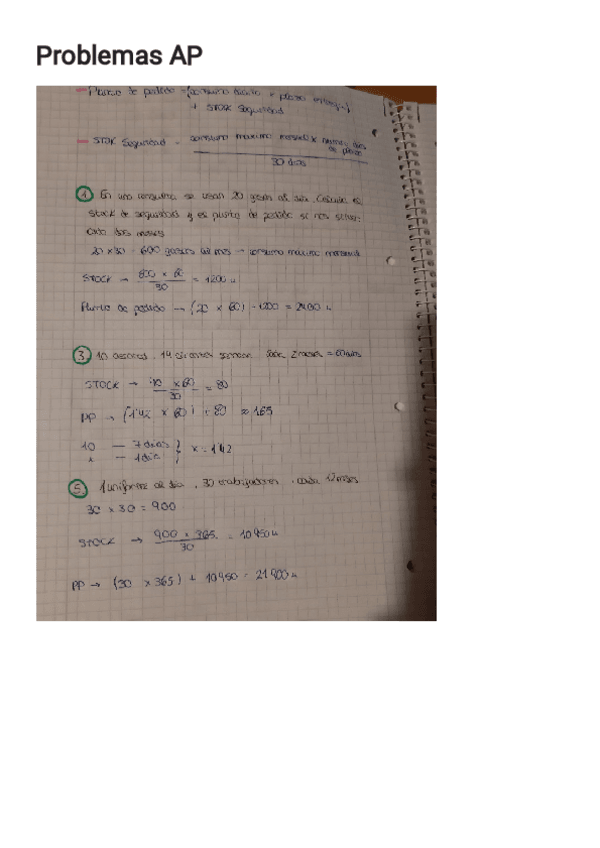 Problemas AP
Punto de pedido = (consumo diario x plazo entrega)
+ STOK Seguridad
STOK Seguridad = consumo maximo mensual x
30 dias
1. En una consulta se usan 20 gasas al dia. Calcula el
stock de seguridad y el punto de pedido si nos sirven
cada dos meses
20 x 30 = 600 gasas al mes → consumo máximo mensual
STOCK → 600 x 60 = 1200 u
30
Punto de pedido → (20 x 60) + 1200 = 2400 u
3. 10 14 2 meses = 60 dias
STOCK → 40 x 60 = 80
30
PP → (1'42 x 60) + 80 ≈ 165
10 — 7 dias
x — 1 dia } x = 1'42
5. 1 uniforme al dia, 30 trabajadores, cada 12 meses
30 x 30 = 900
STOCK → 900 x 365 = 10950 u
30
PP → (30 x 365) + 10950 = 21900 u